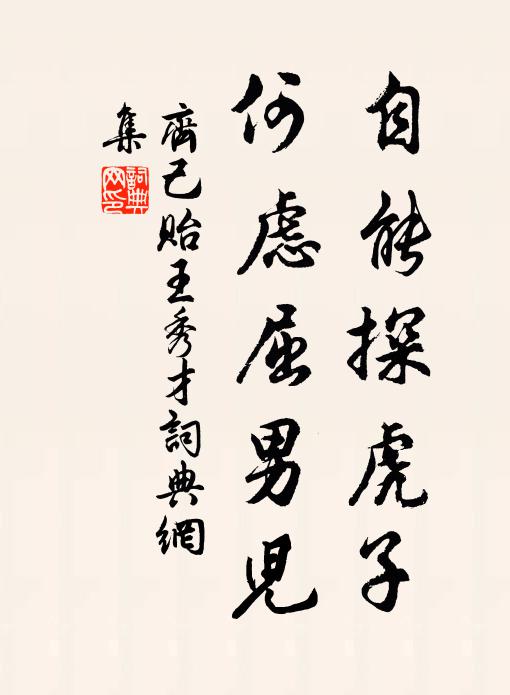 自能探虎子
何慮屈男兒
齊己貽王秀才詞典網
集
詞典
网印